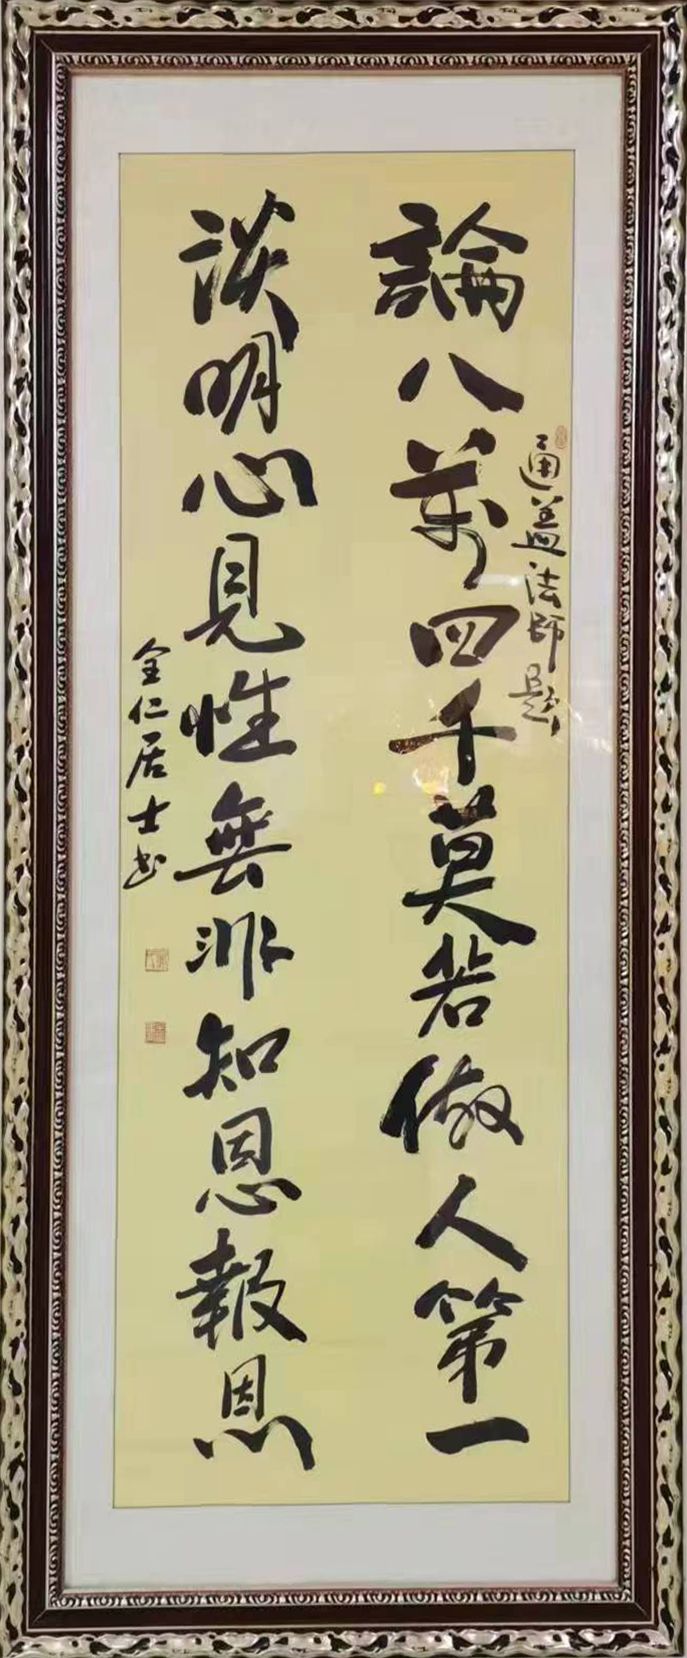 論八萬四千莫若做人第一
通盖法師題
談明心見性無非知恩報恩
全仁居士书